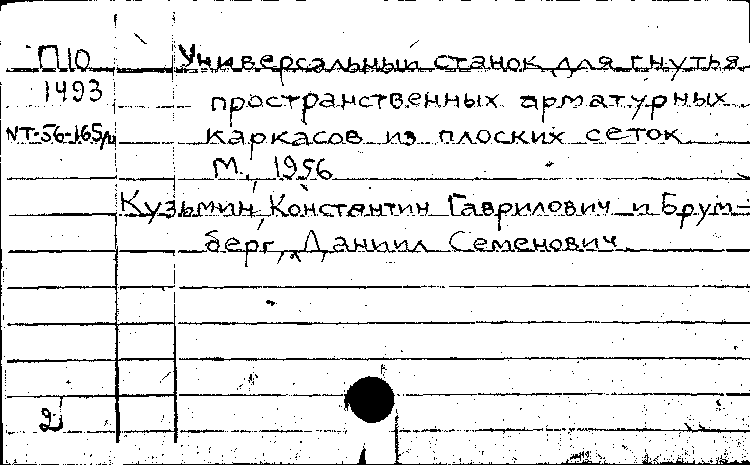 П10 Универсальный станок для гнутья
1493 пространственных арматурных
NT-56-165/4 каркасов из плоских сеток
М., 1956
Кузьмин, Константин Гаврилович и Брум-
берг, Даниил Семенович
2